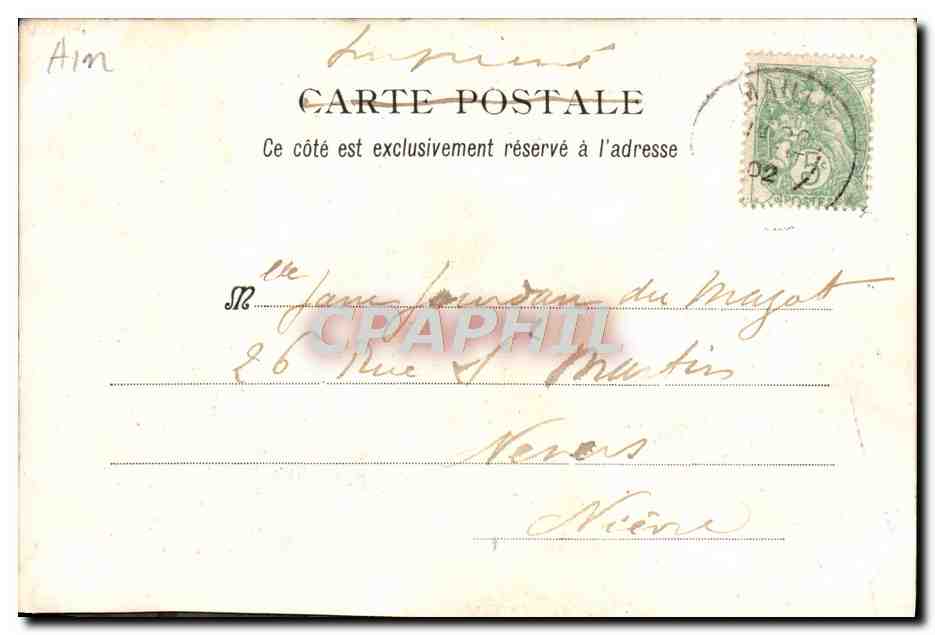 Ain
Imprimé
CARTE POSTALE
Ce côté est exclusivement réservé à l'adresse
02
5
POSTES
Mlle Jane Jourdan du Mazot
CPAPHIL
26 Rue St Martin
Nevers
Nièvre